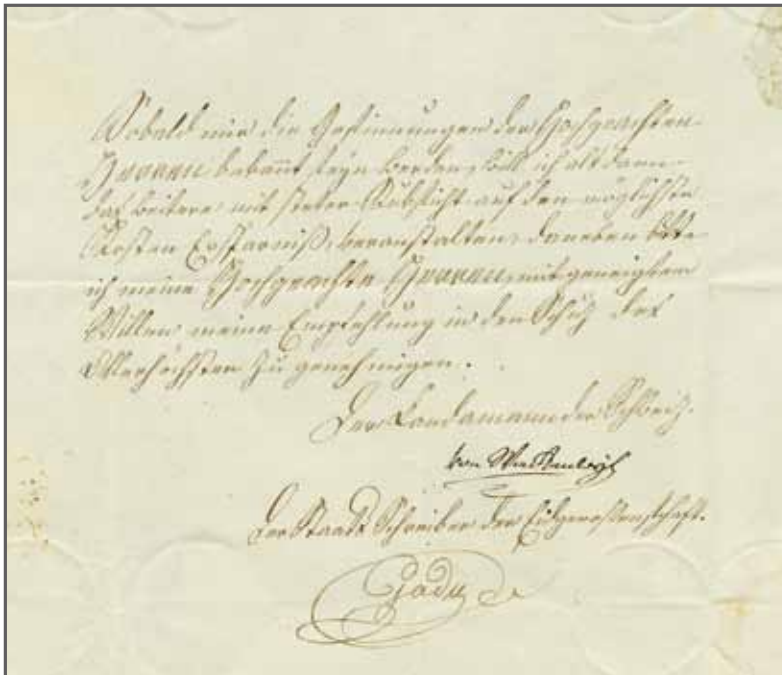 Sobald mir die Gesinnungen der Hochgeachten
Herren bekannt seyn werden, will ich alsdann
das weitere mit steter Rüksicht auf den möglichste
Kosten Ersparniß, veranstalten, daneben bitte
ich meine Hochgeachte Herren, mit geneigtem
Willen meine Empfehlung in den Schuz des
Allerhöchsten zu genehmigen.
Der Landamann der Schweiz.
von Wattenwyl
Der Staats Schreiber der Eidgenossenschaft.